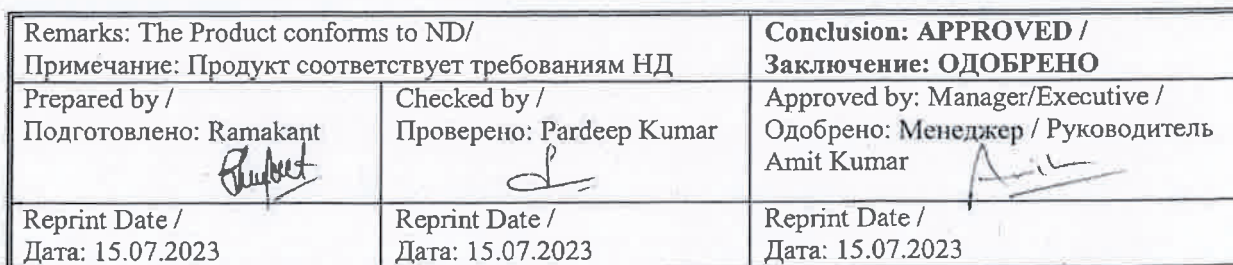 Remarks: The Product conforms to ND/
Примечание: Продукт соответствует требованиям НД
Conclusion: APPROVED /
Заключение: ОДОБРЕНО
Prepared by /
Подготовлено: Ramakant
Checked by /
Проверено: Pardeep Kumar
Approved by: Manager/Executive /
Одобрено: Менеджер / Руководитель
Amit Kumar
Amit
Reprint Date /
Дата: 15.07.2023
Reprint Date /
Дата: 15.07.2023
Reprint Date /
Дата: 15.07.2023